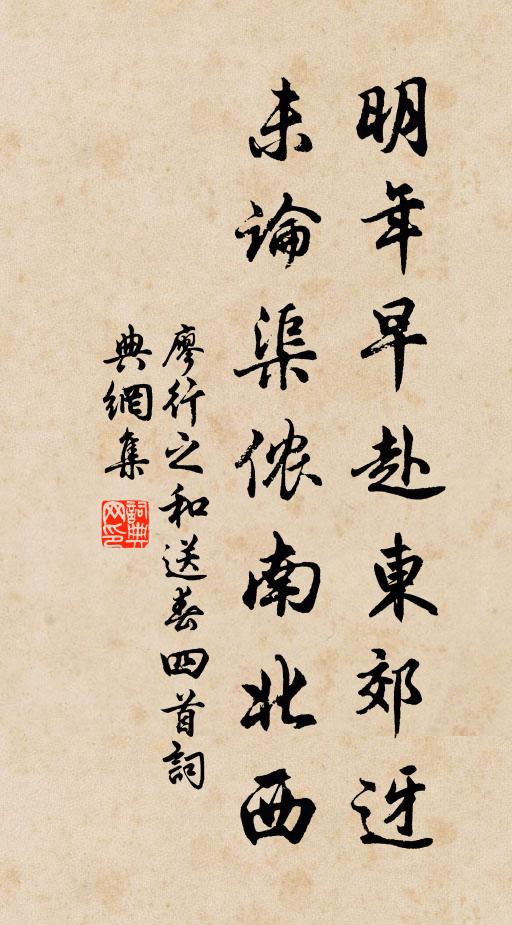 明年早赴東郊迓
未論渠侬南北西
廖行之和送春四首詞
典網集
詞典網印